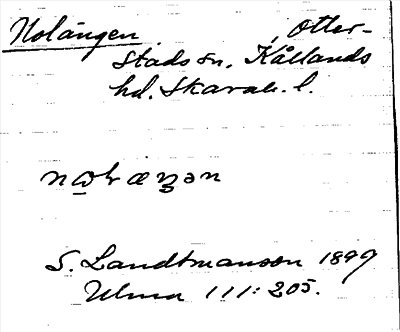 Nolängen, Otter-
stads sn, Kållands
hd. Skarab. l.
S. Landtmanson 1899
Ulma 111: 205.